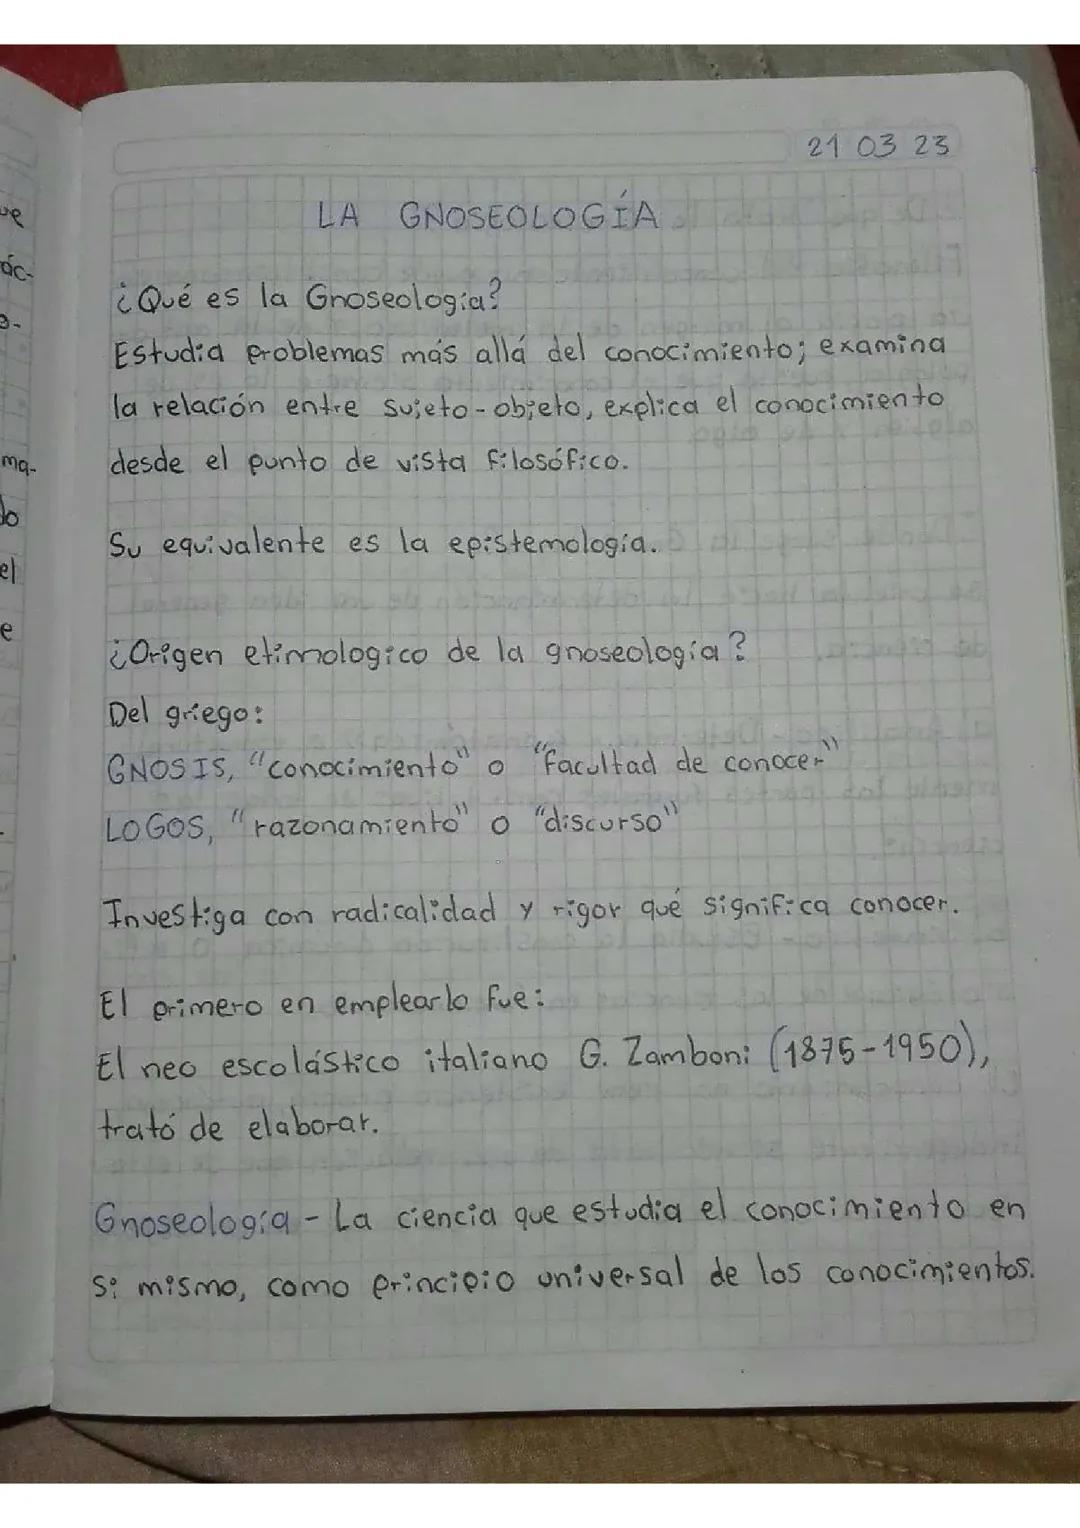 ve
ác-
ma-
do
el
e
21 03 23
LA GNOSEOLOGÍA
¿Qué es la Gnoseología?
Estudia problemas más allá del conocimiento; examina
la relación entre sujeto-objeto, explica el conocimiento
desde el punto de vista filosófico.
Su equivalente es la epistemología.
¿Origen etimologico de la gnoseología?
Del griego:
GNOSIS, "conocimiento" o "facultad de conocer"
LOGOS, "razonamiento" o "discurso"
Investiga con radicalidad y rigor qué significa conocer.
El primero en emplearlo fue:
El neo escolástico italiano G. Zamboni (1875-1950),
trató de elaborar.
Gnoseología - La ciencia que estudia el conocimiento en
si mismo, como principio universal de los conocimientos.